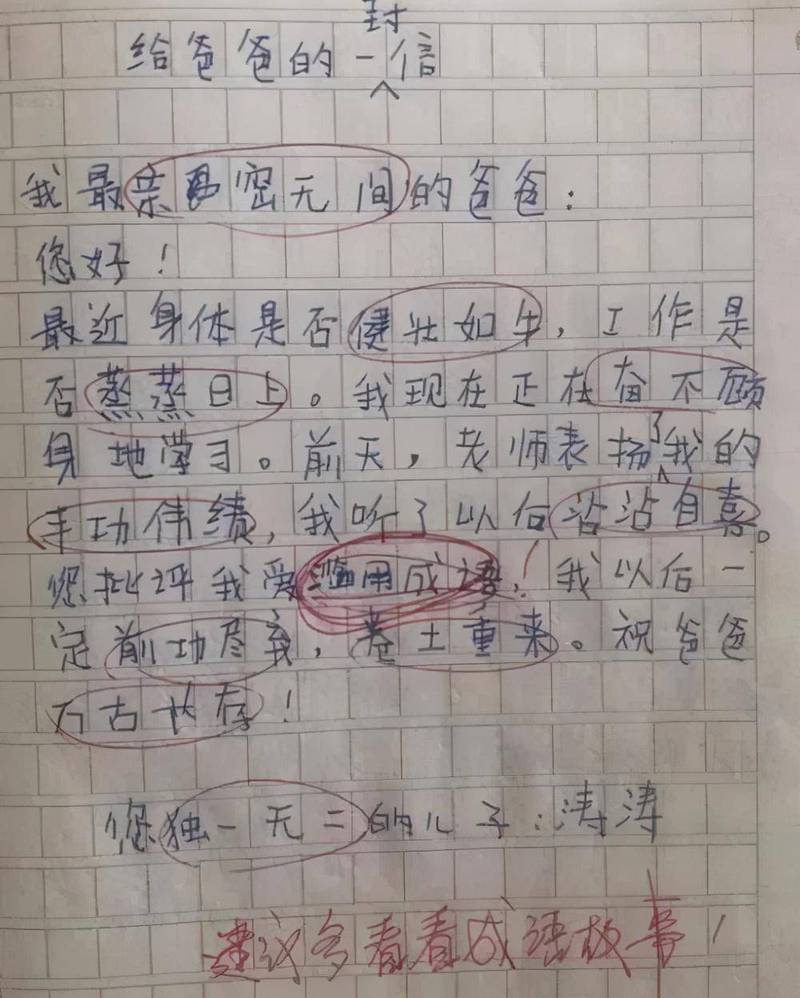 给爸爸的一封信
我最亲密无间的爸爸:
您好!
最近身体是否健壮如牛,工作是
否蒸蒸日上。我现在正在奋不顾
身地学习。前天,老师表扬了我的
丰功伟绩,我听了以后沾沾自喜。
您批评我爱滥用成语,我以后一
定前功尽弃,卷土重来。祝爸爸
万古长存!
您独一无二的儿子:涛涛
建议多看看成语故事!